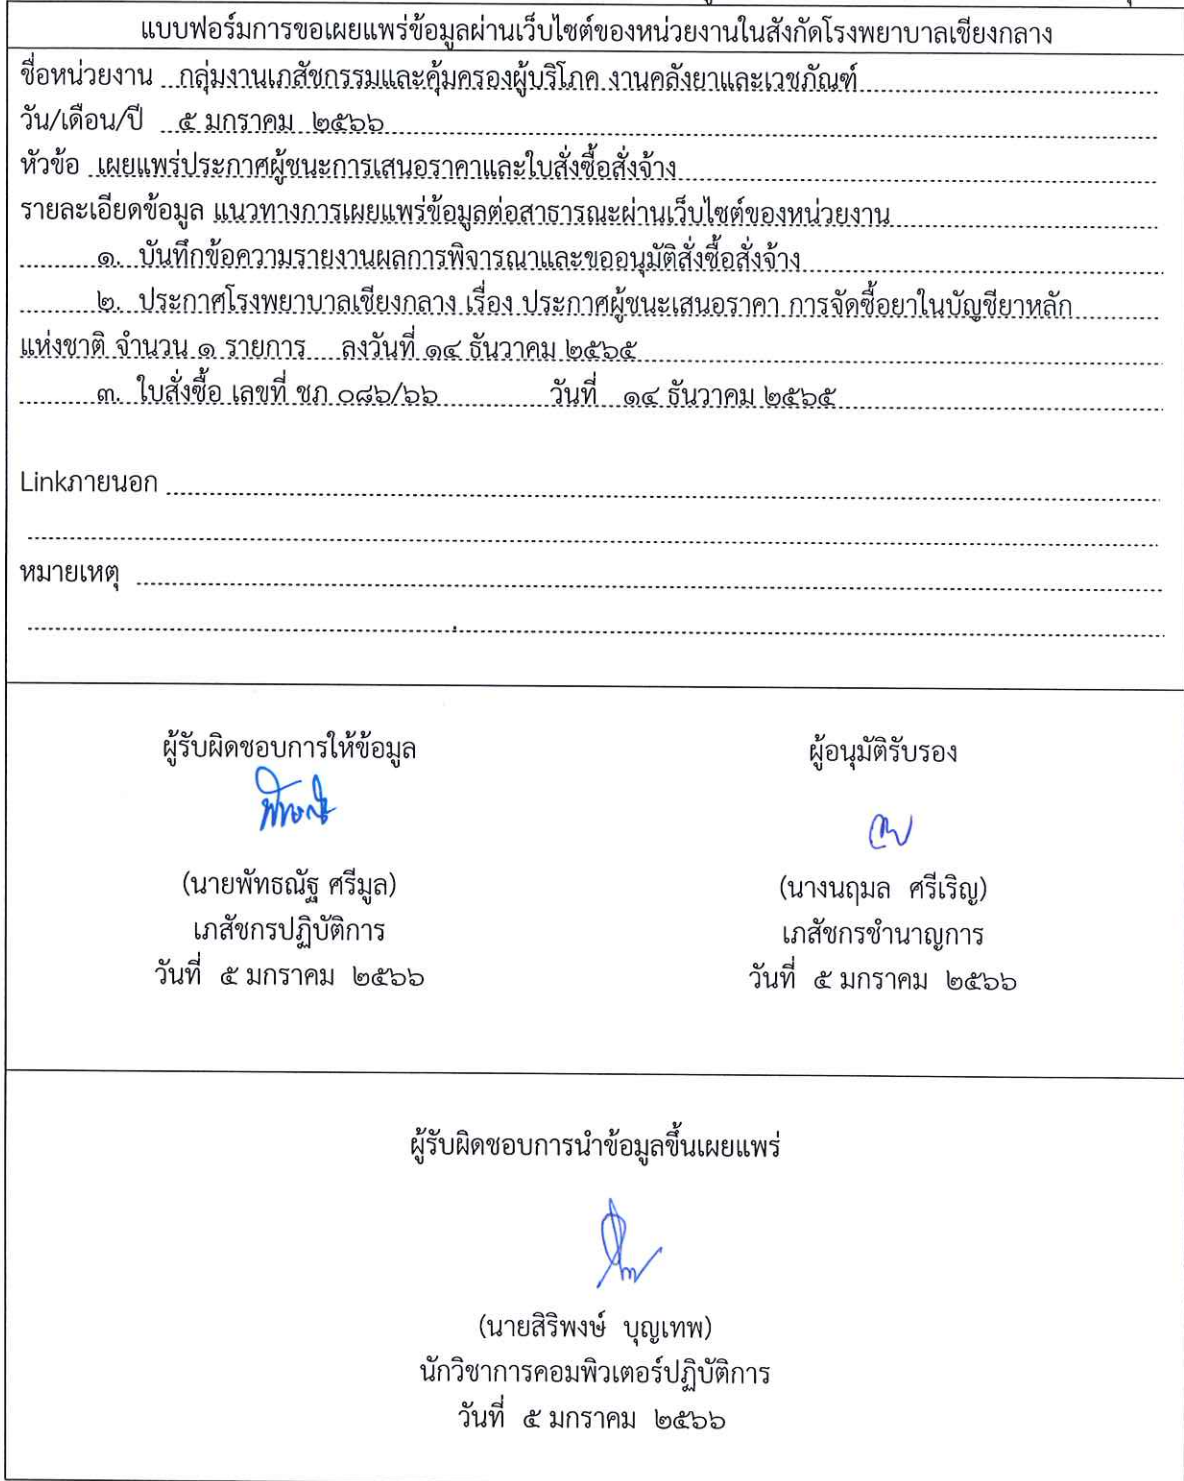 แบบฟอร์มการขอเผยแพร่ข้อมูลผ่านเว็บไซต์ของหน่วยงานในสังกัดโรงพยาบาลเชียงกลาง
ชื่อหน่วยงาน กลุ่มงานเภสัชกรรมและคุ้มครองผู้บริโภค งานคลังยาและเวชภัณฑ์
วัน/เดือน/ปี ๕ มกราคม ๒๕๖๖
หัวข้อ เผยแพร่ประกาศผู้ชนะการเสนอราคาและใบสั่งซื้อสั่งจ้าง
รายละเอียดข้อมูล แนวทางการเผยแพร่ข้อมูลต่อสาธารณะผ่านเว็บไซต์ของหน่วยงาน
๑. บันทึกข้อความรายงานผลการพิจารณาและขออนุมัติสั่งซื้อสั่งจ้าง
๒. ประกาศโรงพยาบาลเชียงกลาง เรื่อง ประกาศผู้ชนะเสนอราคา การจัดซื้อยาในบัญชียาหลัก
แห่งชาติ จำนวน ๑ รายการ ลงวันที่ ๑๔ ธันวาคม ๒๕๖๕
๓. ใบสั่งซื้อ เลขที่ ชภ ๐๘๖/๖๖ วันที่ ๑๔ ธันวาคม ๒๕๖๕
Linkภายนอก
หมายเหตุ
ผู้รับผิดชอบการให้ข้อมูล ผู้อนุมัติรับรอง
(นายพัทธณัฐ ศรีมูล) (นางนฤมล ศรีเริญ)
เภสัชกรปฏิบัติการ เภสัชกรชำนาญการ
วันที่ ๕ มกราคม ๒๕๖๖ วันที่ ๕ มกราคม ๒๕๖๖
ผู้รับผิดชอบการนำข้อมูลขึ้นเผยแพร่
(นายสิริพงษ์ บุญเทพ)
นักวิชาการคอมพิวเตอร์ปฏิบัติการ
วันที่ ๕ มกราคม ๒๕๖๖